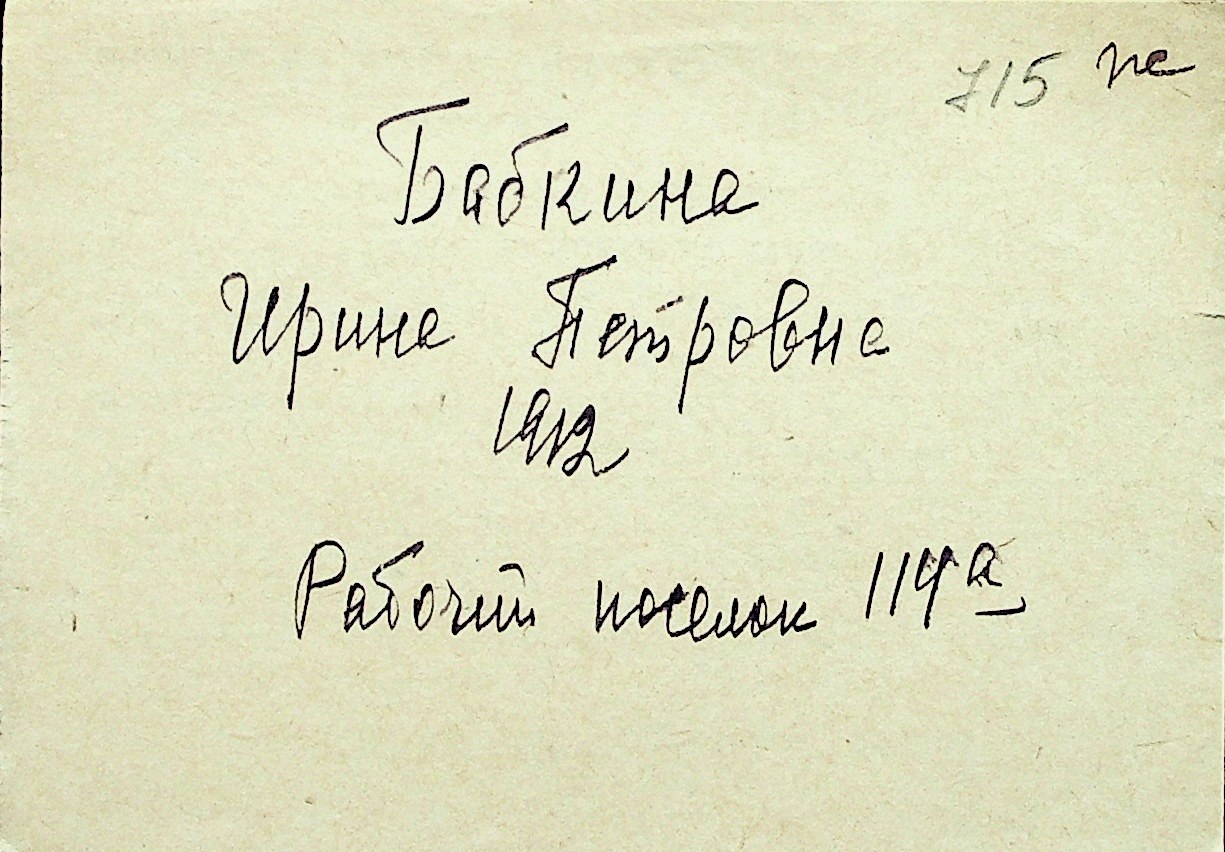 715 пе
Бабкина
Ирина Петровна
1912
Рабочий поселок 114а